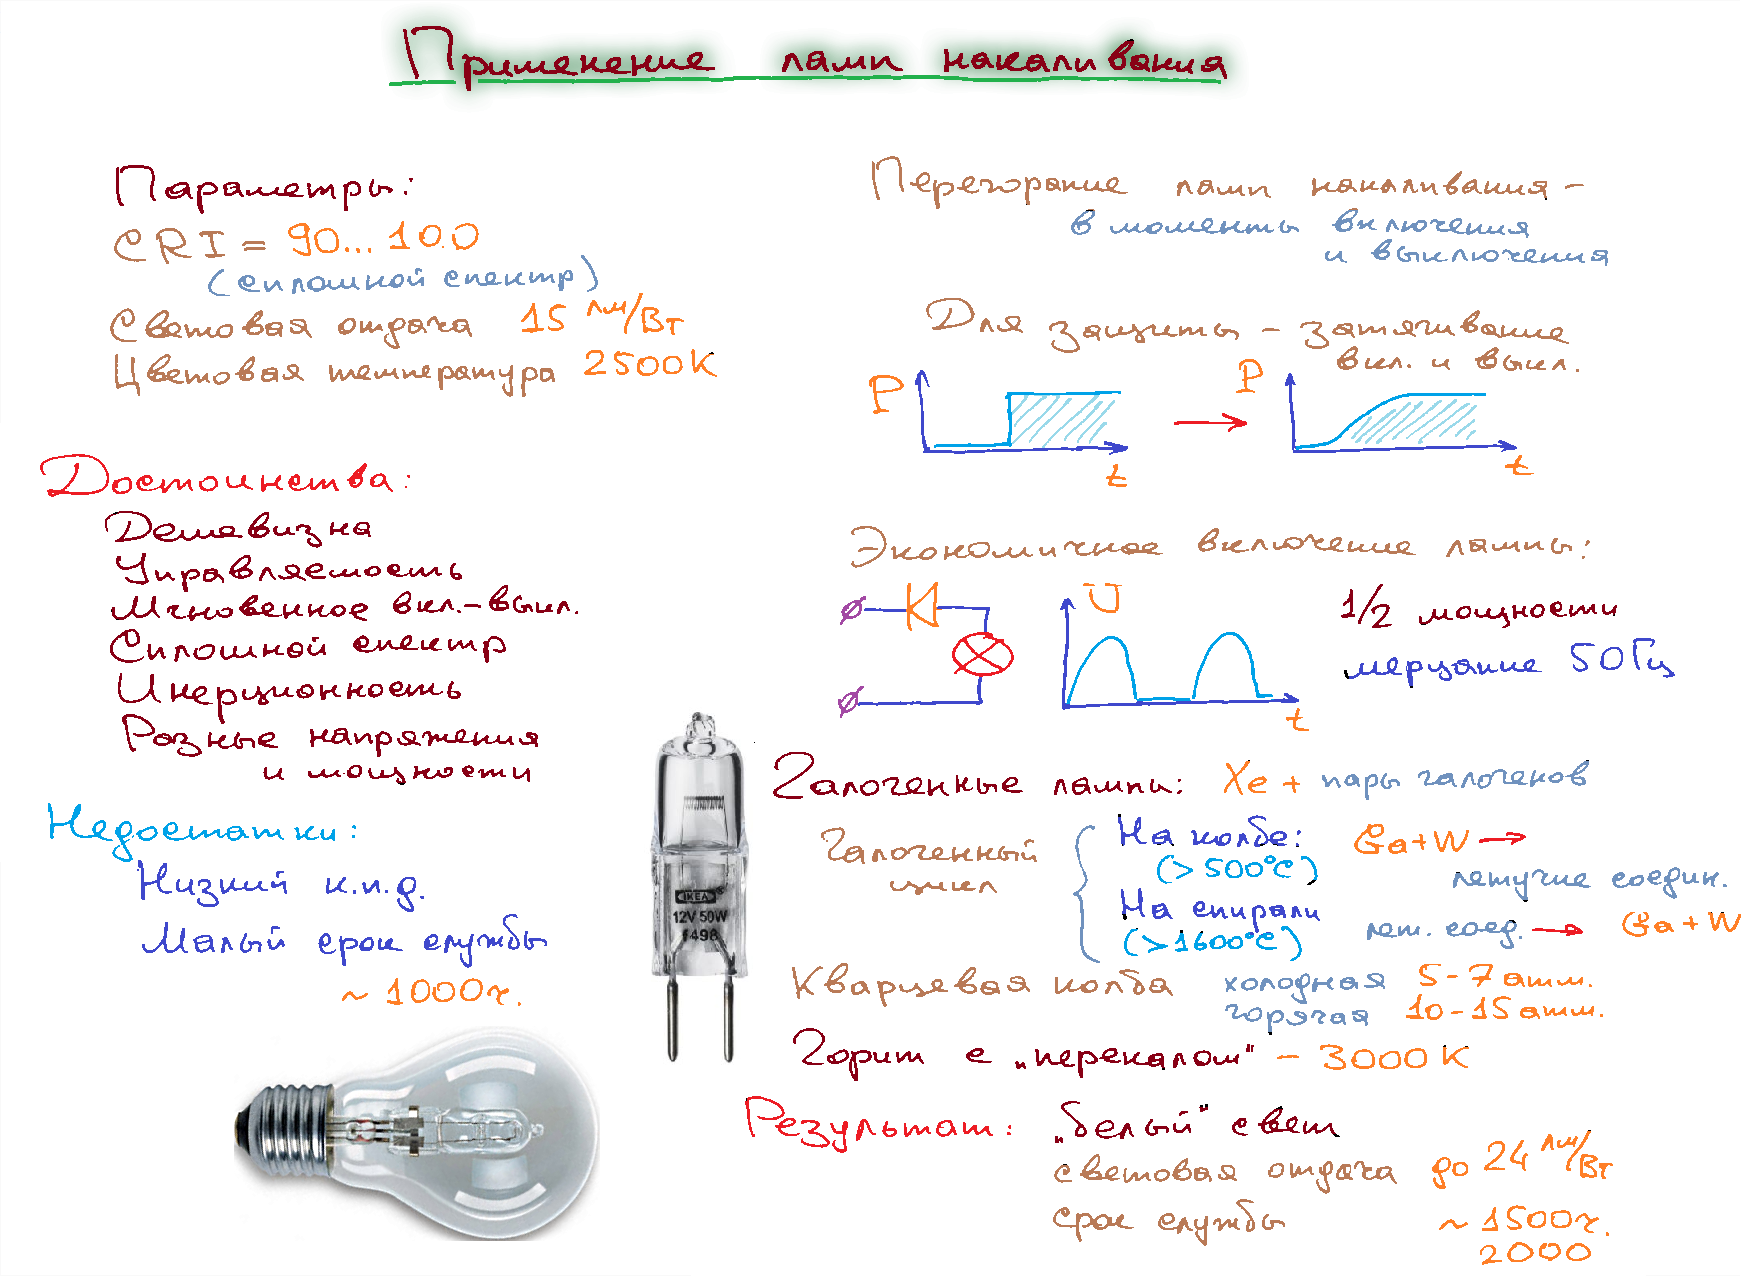 Применение ламп накаливания
Параметры:
CRI = 90...100
(сплошной спектр)
Световая отдача 15 Лм/Вт
Цветовая температура 2500К
Достоинства:
Дешевизна
Управляемость
Мгновенное вкл.-выкл.
Сплошной спектр
Инерционность
Разные напряжения
и мощности
Недостатки:
Низкий к.п.д.
Малый срок службы
~ 1000ч.
Перегорание ламп накаливания -
в моменты включения
и выключения
Для защиты - затягивание
вкл. и выкл.
P
t
P
t
Экономичное включение лампы:
U
t
1/2 мощности
мерцание 50Гц
Галогенные лампы: Xe + пары галогенов
Галогенный
цикл
На колбе:
(>500°C)
Ga+W →
летучие соедин.
На спирали
(>1600°C)
лет. соед. → Ga+W
Кварцевая колба холодная 5-7 атм.
горячая 10-15 атм.
Горит с „перекалом" - 3000К
Результат: „белый" свет
световая отдача до 24 Лм/Вт
срок службы ~ 1500ч.
2000
IKEA
12V 50W